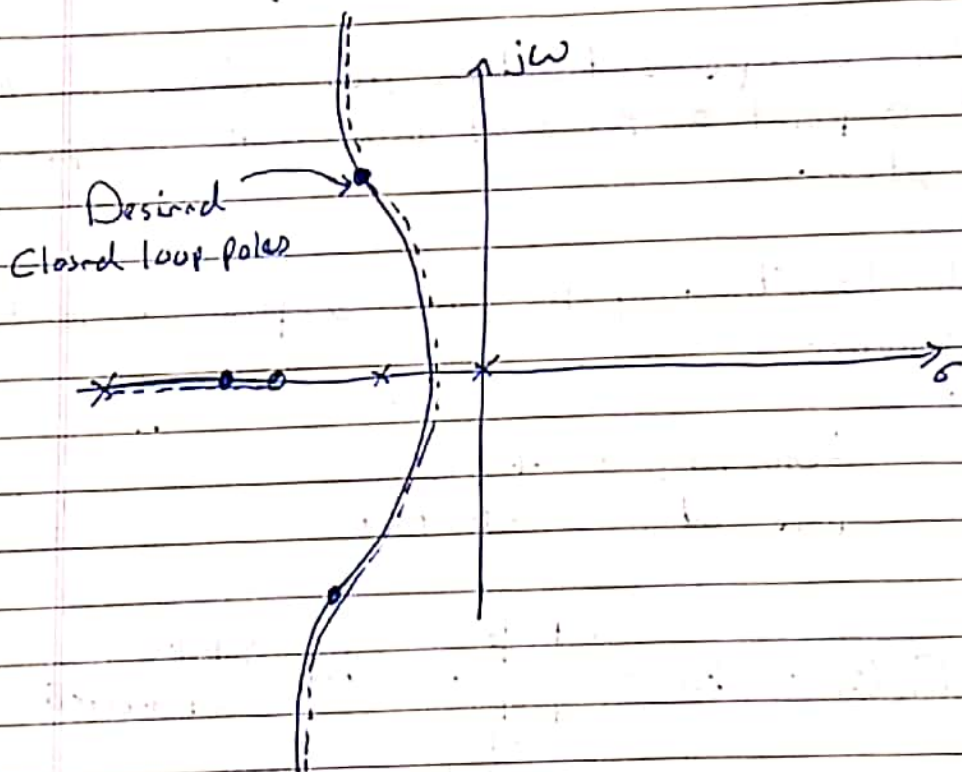 jω
Desired
Closed loop poles
σ